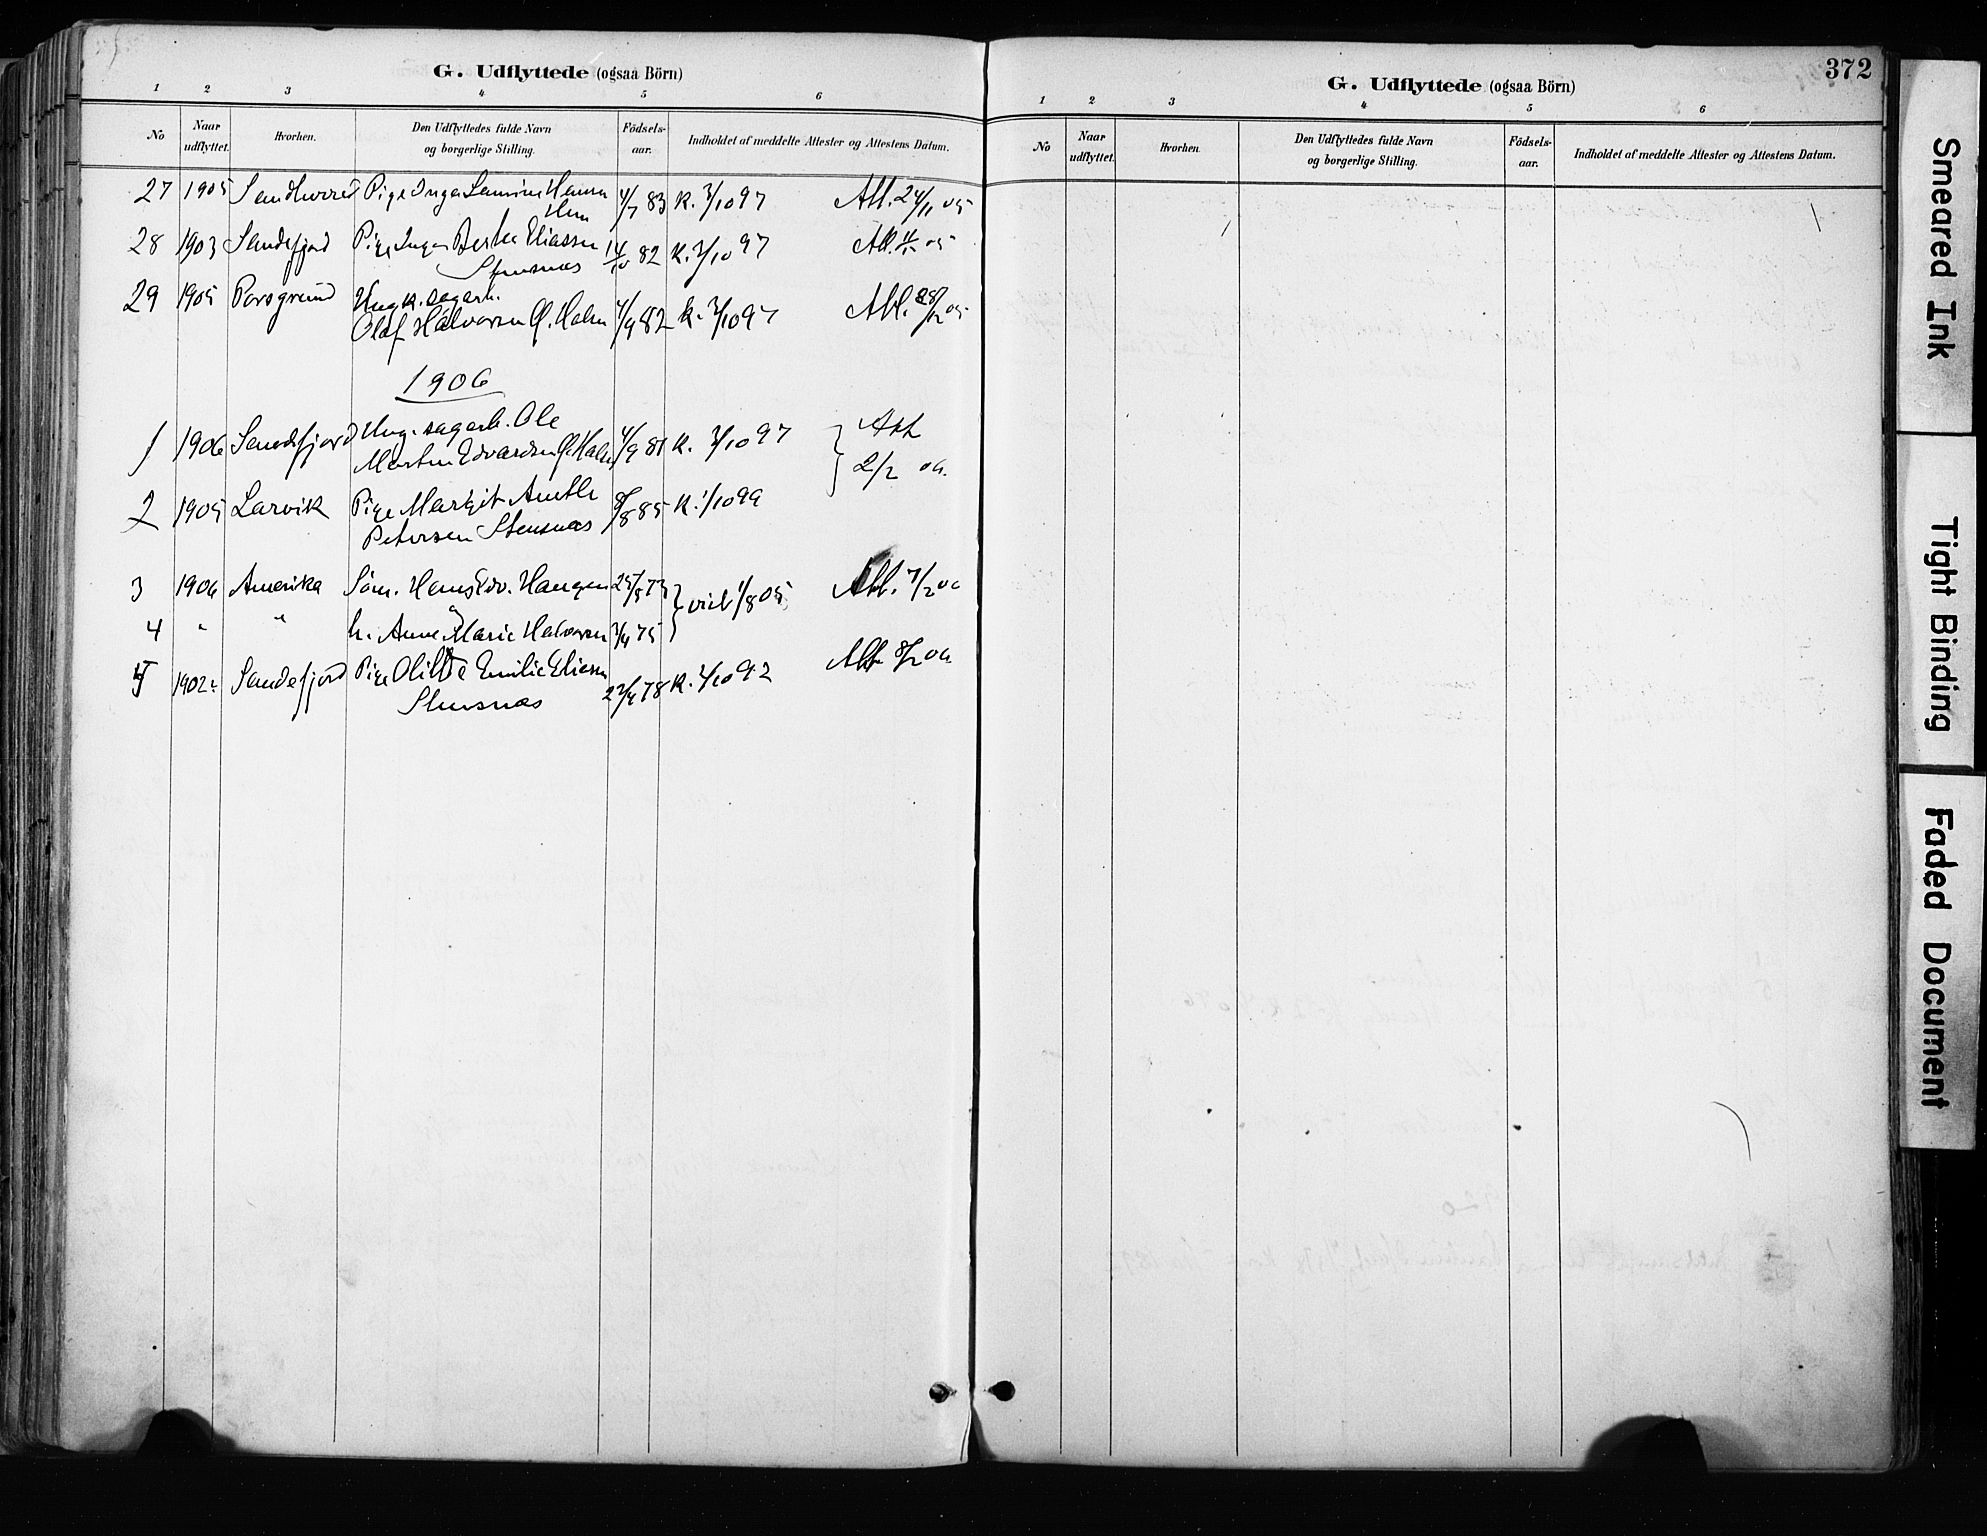 G. Udflyttede (ogsaa Börn)
1 2 3 4 5 6
No Naar udflyttet. Hvorhen. Den Udflyttedes fulde Navn og borgerlige Stilling. Födsels-aar. Indholdet af meddelte Attester og Attestens Datum.
27 1905 Pige Inga Hanna 83 K. 3/10 97 Att. 24/11 05
28 1903 Sandefjord Pige Eliassen 14/10 82 K. 3/10 97 Att.
Stensnæs
29 1905 Porsgrund Ungk. sagarb.
Olaf Halvorsen Holm 4/9 82 K. 3/10 97 Att. 28/12 05
1906
1 1906 Sandefjord Ung. sagarb. Ole Att
Martin Edvardsen 4/9 81 K. 3/10 97 2/2 06.
2 1905 Larvik Pige Margit 8/8 85 K. 1/10 99
Petersen Stensnæs
3 1906 Amerika Söm. Hans Edv. Haugen 25/5 73 viet 1/8 05 Att. 7/2 06
4 " " h. Anne Marie Halvorsen 3/4 75
5 1902 Sandefjord Pige Emilie Eliasen Att 8/2 06
Stensnæs 22/4 78 K. 2/10 92
372
G. Udflyttede (ogsaa Börn)
1 2 3 4 5 6
No Naar udflyttet. Hvorhen. Den Udflyttedes fulde Navn og borgerlige Stilling. Födsels-aar. Indholdet af meddelte Attester og Attestens Datum.
Smeared Ink
Tight Binding
Faded Document